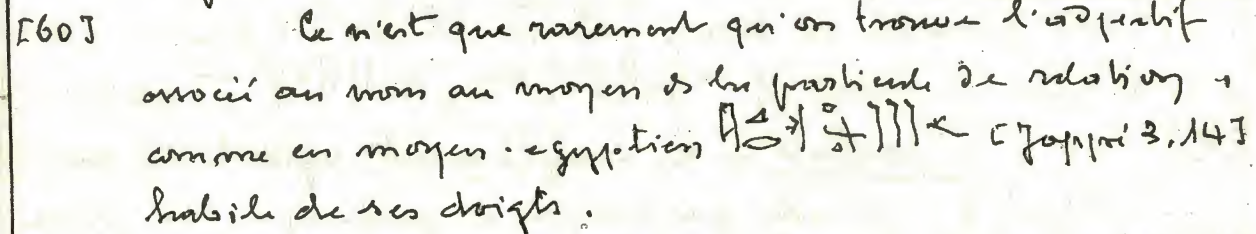 [60] Ce n'est que rarement qu'on trouve l'adjectif
associé au nom au moyen de la particule de relation,
comme en moyen-egyptien [Joppé 3,14]
habile de ses doigts.